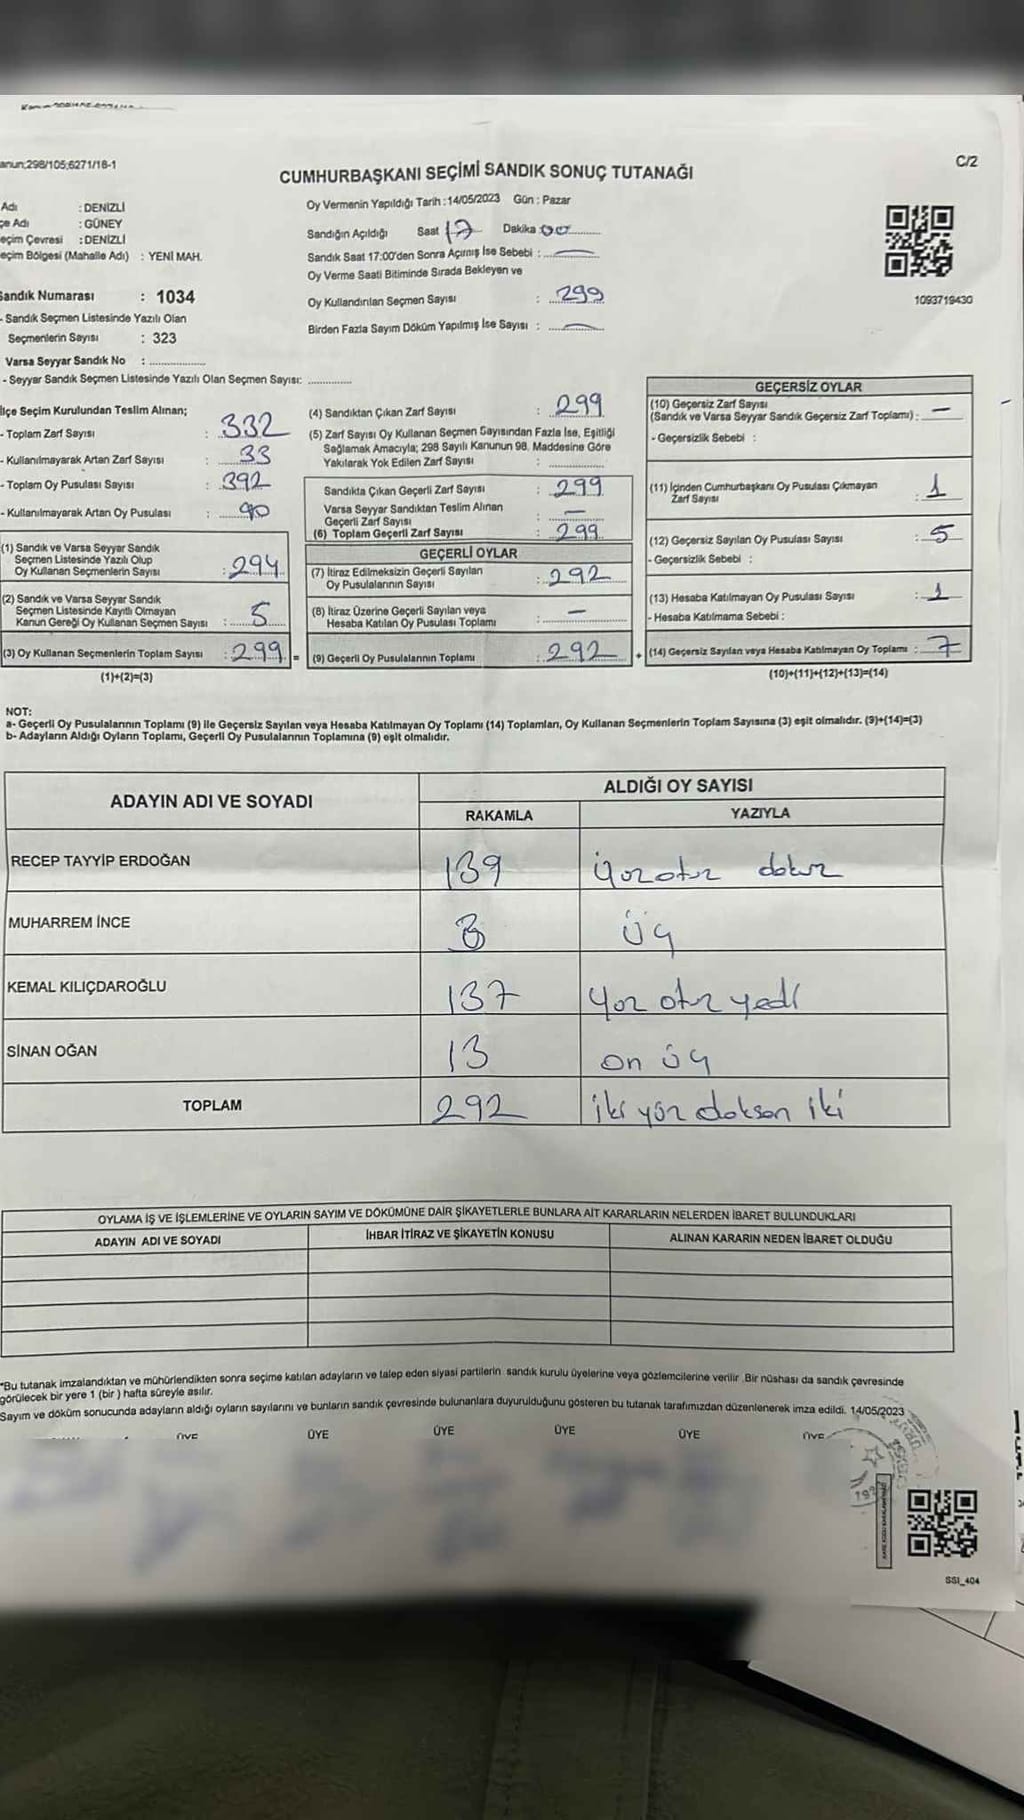 anun;298/105;6271/18-1
C/2
CUMHURBAŞKANI SEÇİMİ SANDIK SONUÇ TUTANAĞI
Adı : DENİZLİ
çe Adı : GÜNEY
eçim Çevresi : DENİZLİ
eçim Bölgesi (Mahalle Adı) : YENİ MAH.
Sandık Numarası : 1034
- Sandık Seçmen Listesinde Yazılı Olan
Seçmenlerin Sayısı : 323
Varsa Seyyar Sandık No :
- Seyyar Sandık Seçmen Listesinde Yazılı Olan Seçmen Sayısı:
Oy Vermenin Yapıldığı Tarih : 14/05/2023 Gün : Pazar
Sandığın Açıldığı Saat 17 Dakika : 00
Sandık Saat 17:00'den Sonra Açımış İse Sebebi : —
Oy Verme Saati Bitiminde Sırada Bekleyen ve
Oy Kullandırılan Seçmen Sayısı : 299
Birden Fazla Sayım Döküm Yapılmış İse Sayısı : —
1093719430
İlçe Seçim Kurulundan Teslim Alınan;
- Toplam Zarf Sayısı : 332
- Kullanılmayarak Artan Zarf Sayısı : 33
- Toplam Oy Pusulası Sayısı : 392
- Kullanılmayarak Artan Oy Pusulası : 90
(1) Sandık ve Varsa Seyyar Sandık
Seçmen Listesinde Yazılı Olup
Oy Kullanan Seçmenlerin Sayısı : 294
(2) Sandık ve Varsa Seyyar Sandık
Seçmen Listesinde Kayıtlı Olmayan
Kanun Gereği Oy Kullanan Seçmen Sayısı : 5
(3) Oy Kullanan Seçmenlerin Toplam Sayısı : 299 =
(1)+(2)=(3)
(4) Sandıktan Çıkan Zarf Sayısı : 299
(5) Zarf Sayısı Oy Kullanan Seçmen Sayısından Fazla İse, Eşitliği
Sağlamak Amacıyla; 298 Sayılı Kanunun 98. Maddesine Göre
Yakılarak Yok Edilen Zarf Sayısı :
Sandıkta Çıkan Geçerli Zarf Sayısı : 299
Varsa Seyyar Sandıktan Teslim Alınan
Geçerli Zarf Sayısı : —
(6) Toplam Geçerli Zarf Sayısı : 299
GEÇERLİ OYLAR
(7) İtiraz Edilmeksizin Geçerli Sayılan
Oy Pusulalarının Sayısı : 292
(8) İtiraz Üzerine Geçerli Sayılan veya
Hesaba Katılan Oy Pusulası Toplamı : —
(9) Geçerli Oy Pusulalarının Toplamı : 292 +
GEÇERSİZ OYLAR
(10) Geçersiz Zarf Sayısı
(Sandık ve Varsa Seyyar Sandık Geçersiz Zarf Toplamı) : —
- Geçersizlik Sebebi :
(11) İçinden Cumhurbaşkanı Oy Pusulası Çıkmayan
Zarf Sayısı : 1
(12) Geçersiz Sayılan Oy Pusulası Sayısı : 5
- Geçersizlik Sebebi :
(13) Hesaba Katılmayan Oy Pusulası Sayısı : 1
- Hesaba Katılmama Sebebi :
(14) Geçersiz Sayılan veya Hesaba Katılmayan Oy Toplamı : 7
(10)+(11)+(12)+(13)=(14)
NOT:
a- Geçerli Oy Pusulalarının Toplamı (9) ile Geçersiz Sayılan veya Hesaba Katılmayan Oy Toplamı (14) Toplamları, Oy Kullanan Seçmenlerin Toplam Sayısına (3) eşit olmalıdır. (9)+(14)=(3)
b- Adayların Aldığı Oyların Toplamı, Geçerli Oy Pusulalarının Toplamına (9) eşit olmalıdır.
ADAYIN ADI VE SOYADI
ALDIĞI OY SAYISI
RAKAMLA YAZIYLA
RECEP TAYYİP ERDOĞAN 139 Yüz otuz dokuz
MUHARREM İNCE 3 üç
KEMAL KILIÇDAROĞLU 137 yüz otuz yedi
SİNAN OĞAN 13 on üç
TOPLAM 292 iki yüz doksan iki
OYLAMA İŞ VE İŞLEMLERİNE VE OYLARIN SAYIM VE DÖKÜMÜNE DAİR ŞİKAYETLERLE BUNLARA AİT KARARLARIN NELERDEN İBARET BULUNDUKLARI
ADAYIN ADI VE SOYADI İHBAR İTİRAZ VE ŞİKAYETİN KONUSU ALINAN KARARIN NEDEN İBARET OLDUĞU
*Bu tutanak imzalandıktan ve mühürlendikten sonra seçime katılan adayların ve talep eden siyasi partilerin sandık kurulu üyelerine veya gözlemcilerine verilir .Bir nüshası da sandık çevresinde
görülecek bir yere 1 (bir ) hafta süreyle asılır.
Sayım ve döküm sonucunda adayların aldığı oyların sayılarını ve bunların sandık çevresinde bulunanlara duyurulduğunu gösteren bu tutanak tarafımızdan düzenlenerek imza edildi. 14/05/2023
ÜYE ÜYE ÜYE ÜYE ÜYE ÜYE
SSI_404